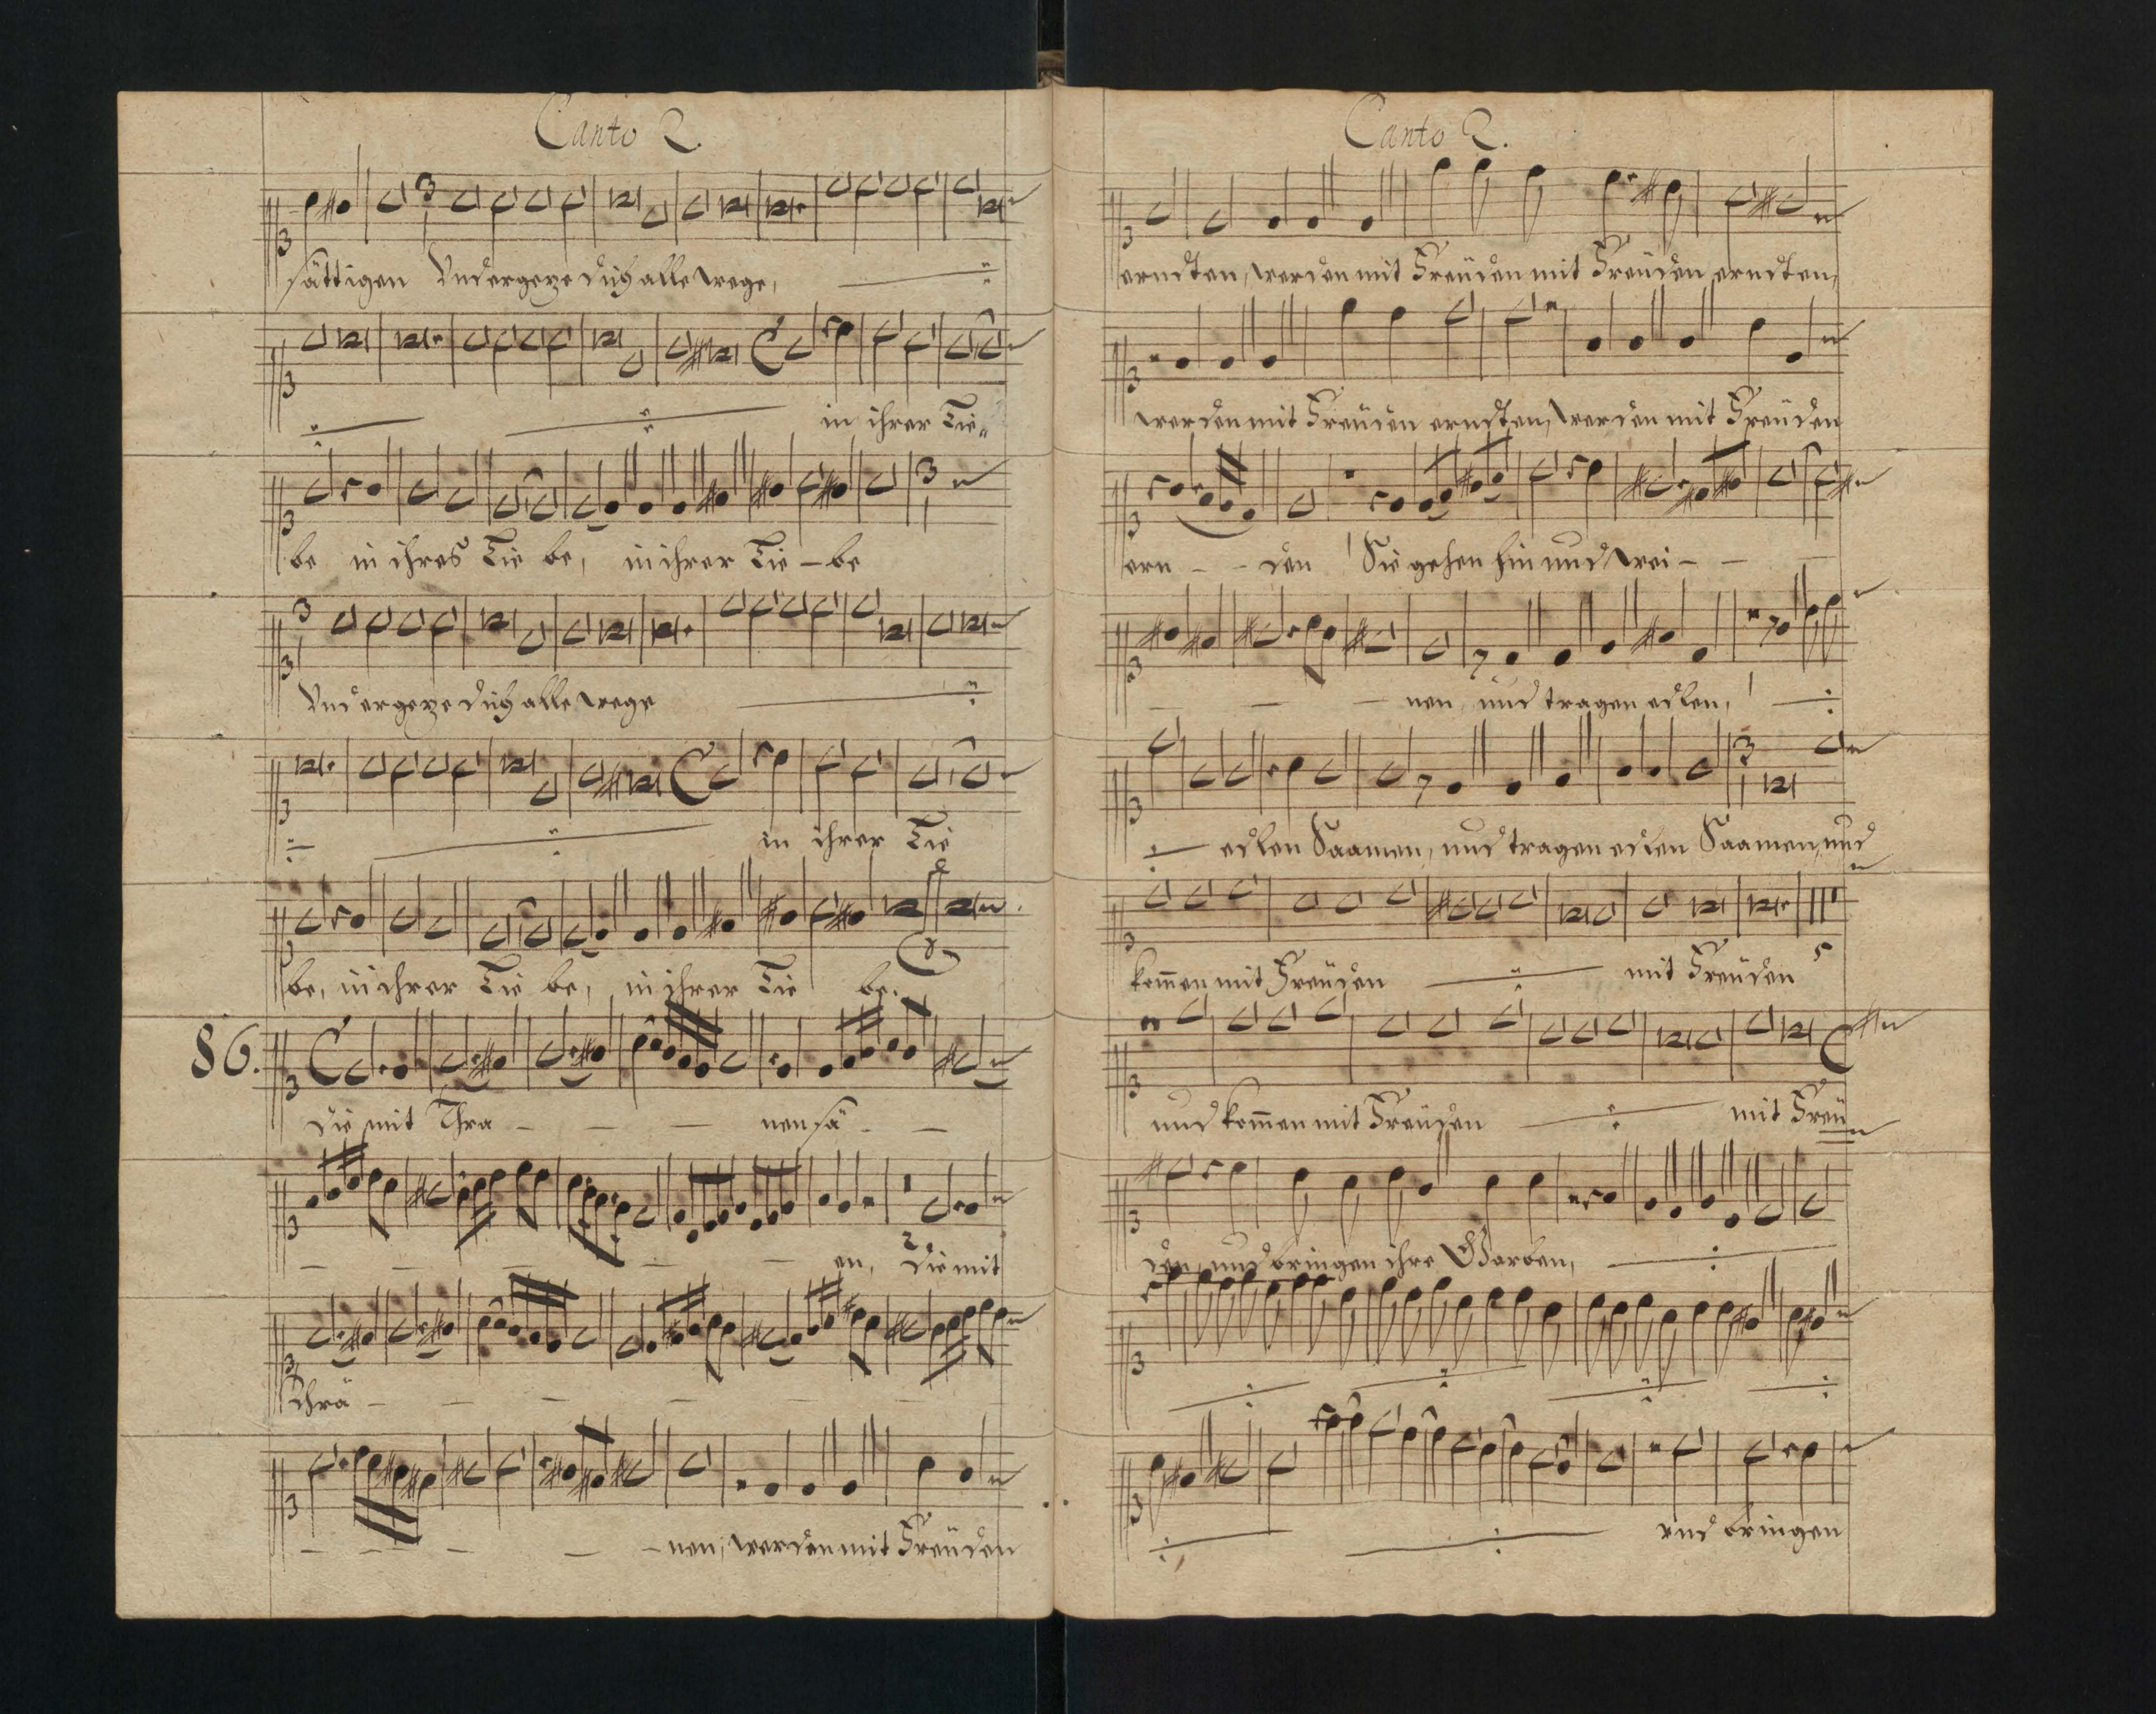 Canto 2.
sättigen Vnd ergeze dich alle wege,
in ihrer Lie„
be in ihrer Lie be, in ihrer Lie – be
Vnd ergeze dich alle wege
in ihrer Lie
be, in ihrer Lie be, in ihrer Lie be.
86.
Die mit Thra - - - nen sä - -
- - - - - - en, Die mit
Thrä - - - - - -
- - - - - nen, werden mit Freüden
Canto 2.
erndten, werden mit Freüden mit Freüden erndten,
werden mit Freüden erndten, werden mit Freüden
ern - - den Sie gehen hin und wei - - -
- - - nen und tragen edlen,
edlen Saamen, und tragen edlen Saamen, und
kom̄en mit Freüden mit Freüden
und kom̄en mit Freüden mit Freü
den, und bringen ihre Garben,
vnd bringen